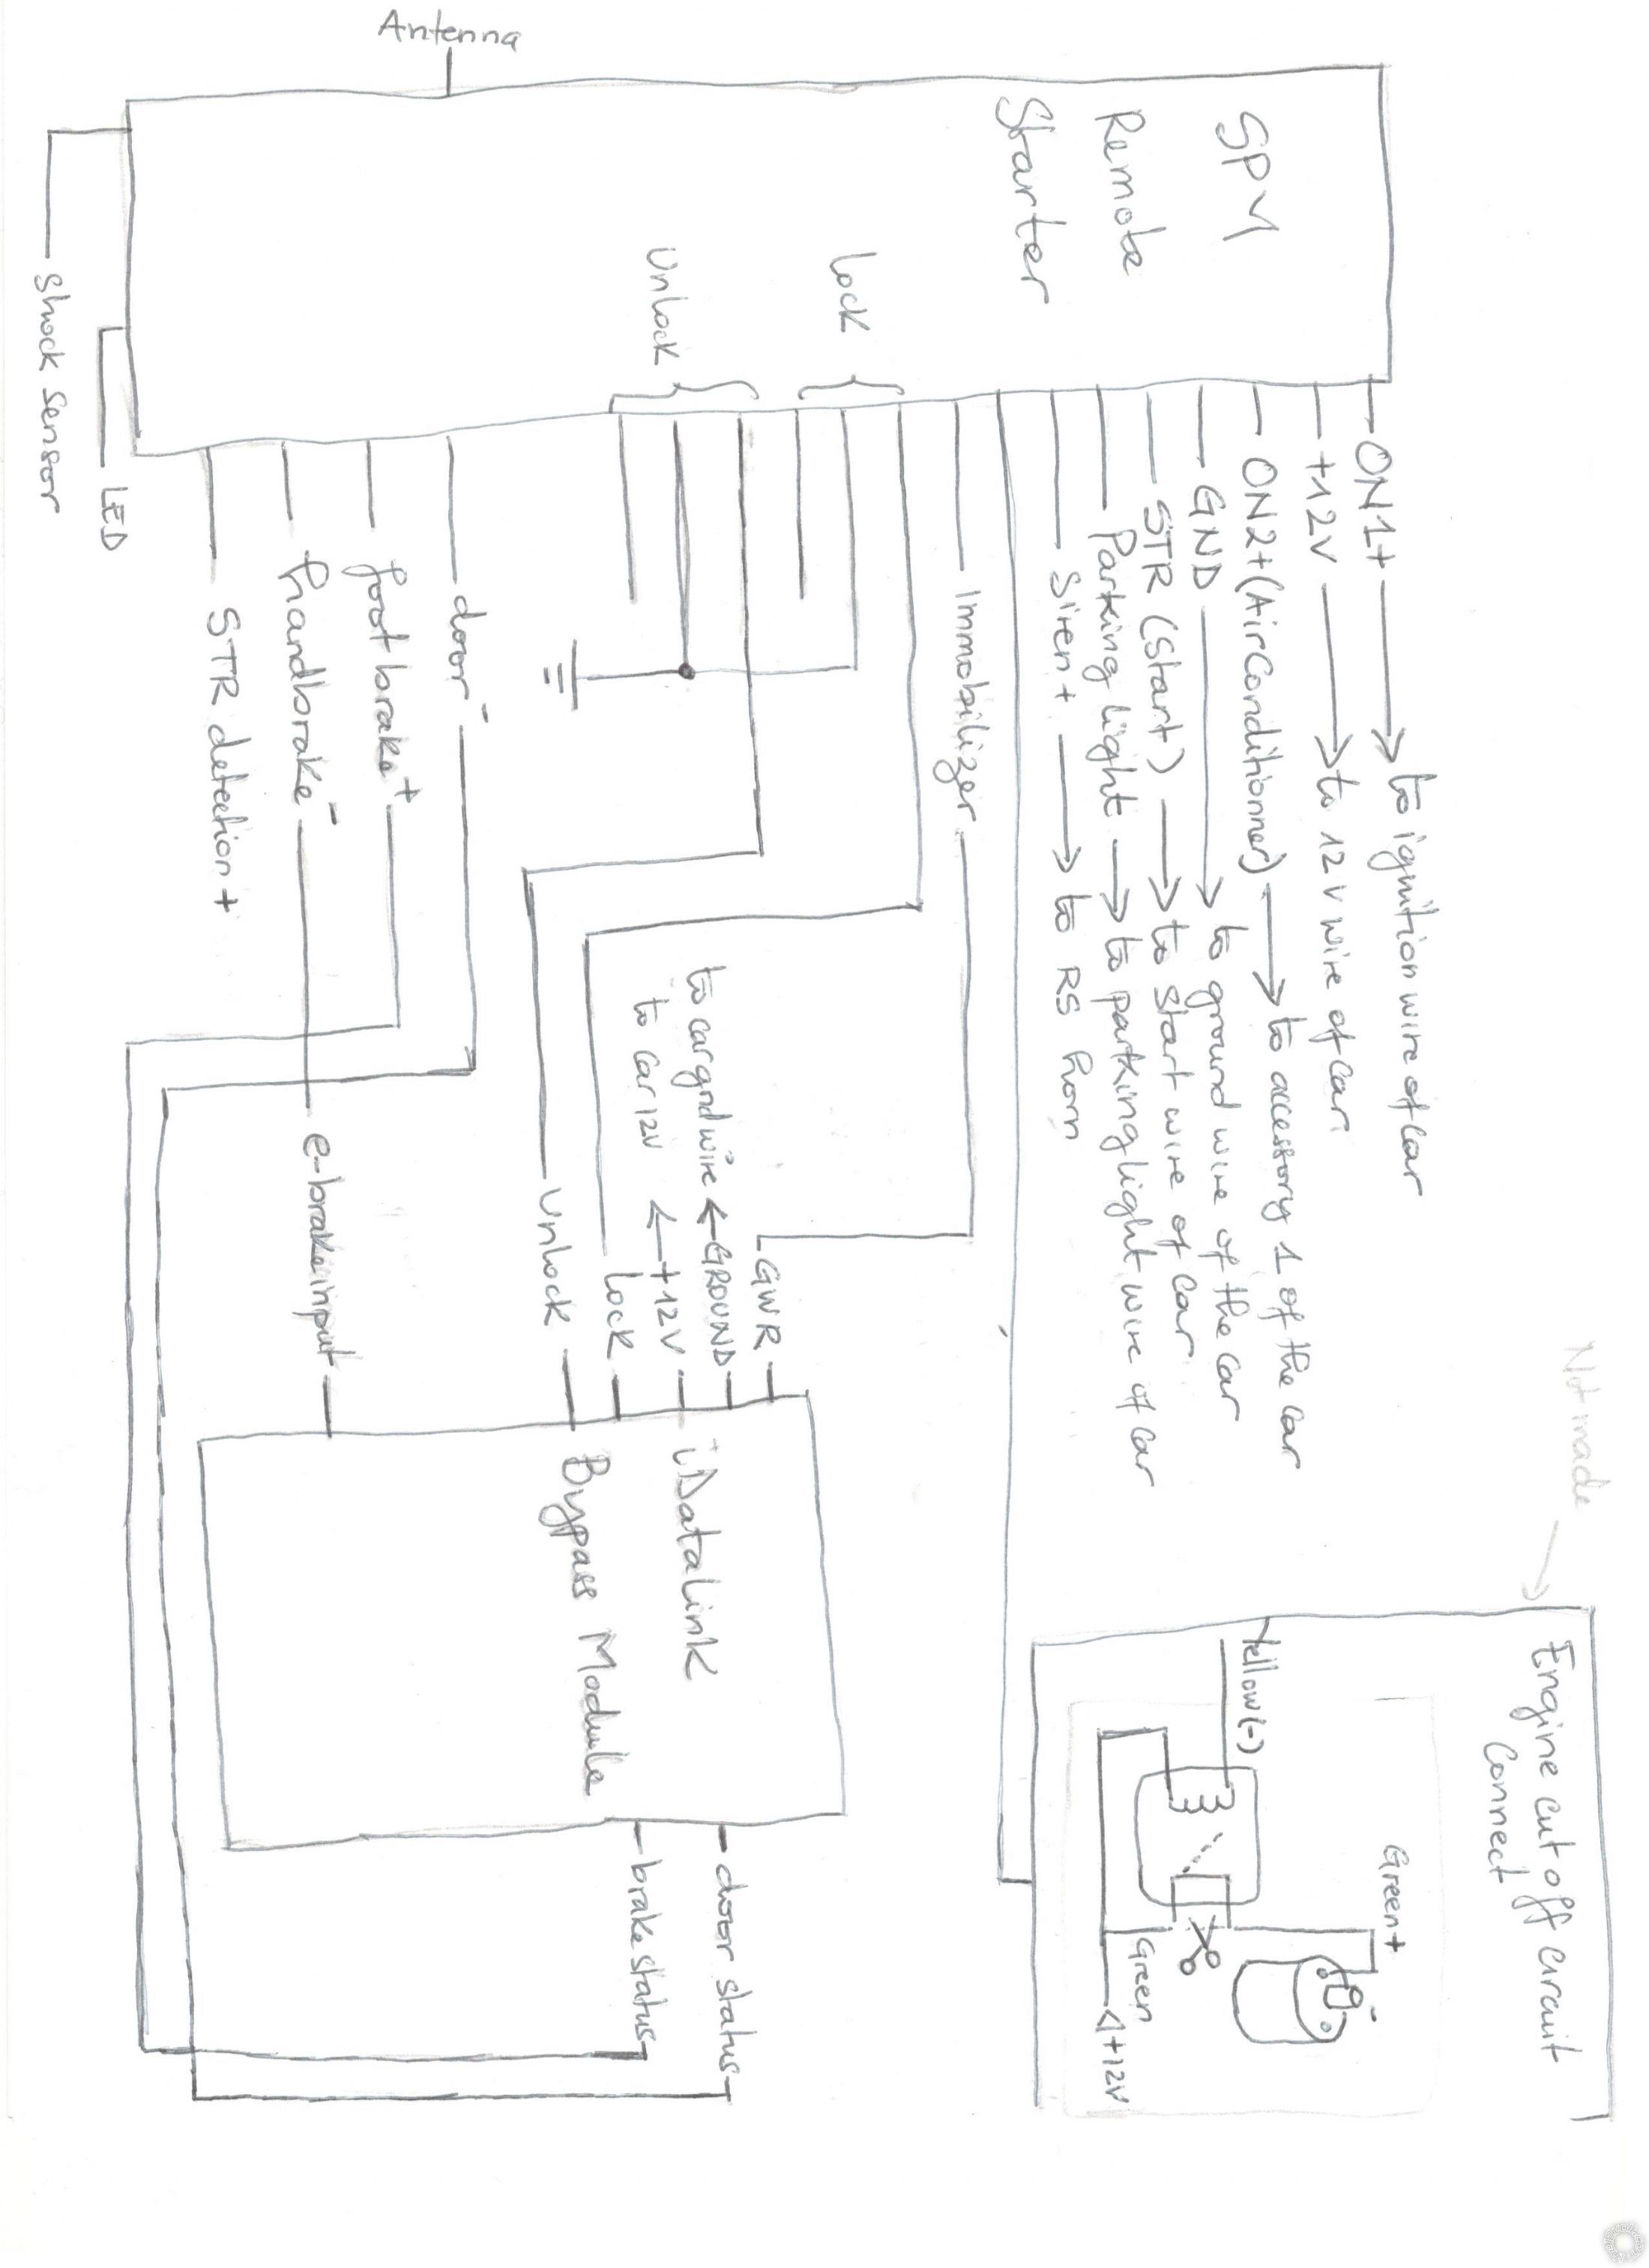 Antenna
SPY
Remote
Starter
Lock
Unlock
ON1+ → to ignition wire of car
+12V → to 12V wire of car
ON2+(AirConditionner) → to accessory 1 of the car
GND → to ground wire of the car
STR (Start) → to start wire of car
Parking light → to parking light wire of car
Siren+ → to RS horn
Immobilizer
door-
foot brake+
handbrake-
STR detection +
LED
Shock Sensor
GWR
to car gnd wire ← GROUND
to car 12V ← +12V
Lock
Unlock
e-brake input
iDataLink
Bypass Module
door status
brake status
Not made
Engine cut off circuit
Connect
Yellow(-)
Green+
-
Green
+12V